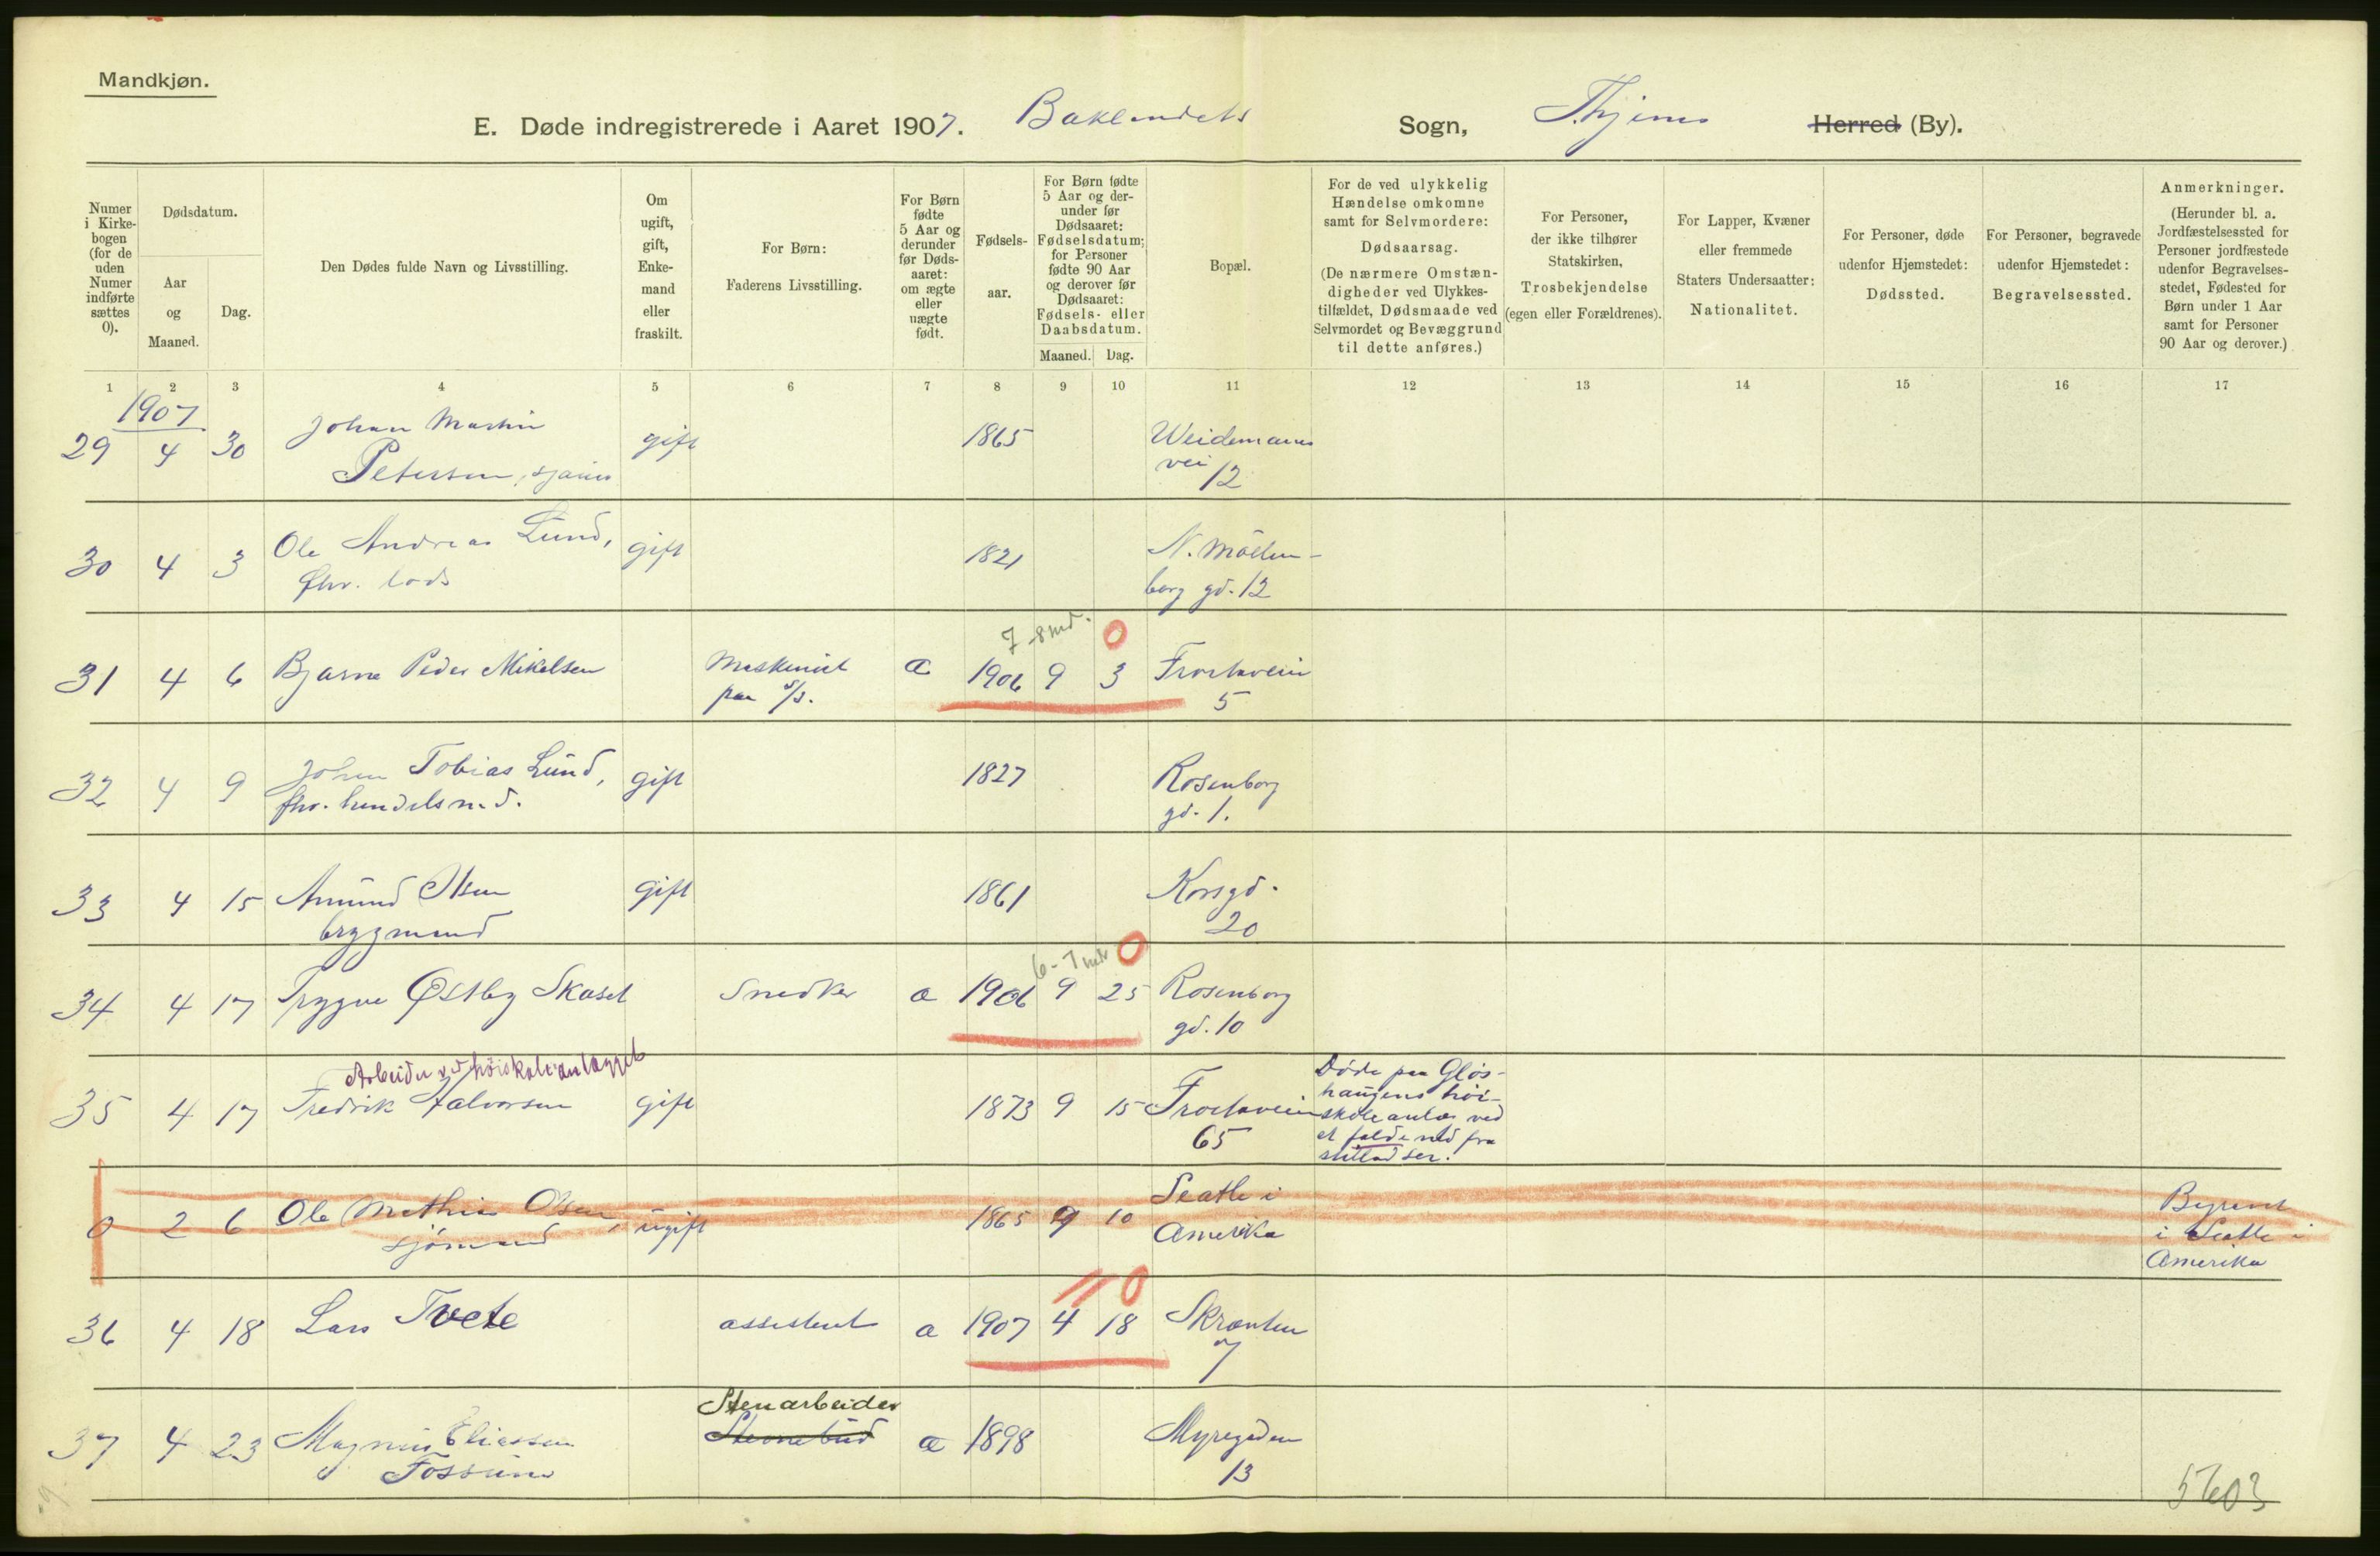 Mandkjøn.
E. Døde indregistrerede i Aaret 1907. Baklandets Sogn, Thjems Herred (By).
Numer i Kirkebogen (for de uden Numer indførte sættes 0).
Dødsdatum.
Aar og Maaned.
Dag.
Den Dødes fulde Navn og Livsstilling.
Om ugift, gift, Enkemand eller fraskilt.
For Børn: Faderens Livsstilling.
For Børn fødte 5 Aar og derunder før Dødsaaret: om ægte eller uægte født.
Fødselsaar.
For Børn fødte 5 Aar og derunder før Dødsaaret: Fødselsdatum; for Personer fødte 90 Aar og derover før Dødsaaret: Fødsels- eller Daabsdatum.
Maaned. Dag.
Bopæl.
For de ved ulykkelig Hændelse omkomne samt for Selvmordere: Dødsaarsag. (De nærmere Omstændigheder ved Ulykkestilfældet, Dødsmaade ved Selvmordet og Bevæggrund til dette anføres.)
For Personer, der ikke tilhører Statskirken, Trosbekjendelse (egen eller Forældrenes).
For Lapper, Kvæner eller fremmede Staters Undersaatter: Nationalitet.
For Personer, døde udenfor Hjemstedet: Dødssted.
For Personer, begravede udenfor Hjemstedet: Begravelsessted.
Anmerkninger. (Herunder bl. a. Jordfæstelsessted for Personer jordfæstede udenfor Begravelsesstedet, Fødested for Børn under 1 Aar samt for Personer 90 Aar og derover.)
1 2 3 4 5 6 7 8 9 10 11 12 13 14 15 16 17
1907
29 4 30 Johan Martin gift 1865 Weidemanns
Petersen, sjauer vei 12
30 4 3 Ole Andreas Lund, gift 1821 N. Möllen-
fhv. lods berg gd. 12
7-8 md. 0
31 4 6 Bjarne Peder Mikalsen Maskinist æ 1906 9 3 Frostaveien
paa s/s. 5
32 4 9 Johan Tobias Lund, gift 1827 Rosenborg
fhv. handelsm. gd. 1.
33 4 15 Amund Olsen gift 1861 Korsgd.
bryggmand 20
6-7 md 0
34 4 17 Trygve Østby Skaset Snedker æ 1906 9 25 Rosenborg
gd. 10
Arbeider ved høiskoleanlægget
35 4 17 Fredrik Halvorsen gift 1873 9 15 Frostaveien
65
Døde paa Gløs-
haugens høi-
skoleanlæg ved
at falde ned fra
stilladser.
0 2 6 Ole Mathias Olsen, ugift 1865 9 10 Seatle i
sjömand Amerika
i Seatle i
Amerika
11 0
36 4 18 Lars Tvete assistent æ 1907 4 18 Skrænten
7
Stenarbeider
37 4 23 Magnus Eliassen æ 1898 Myregaden
Fossum 13
5603